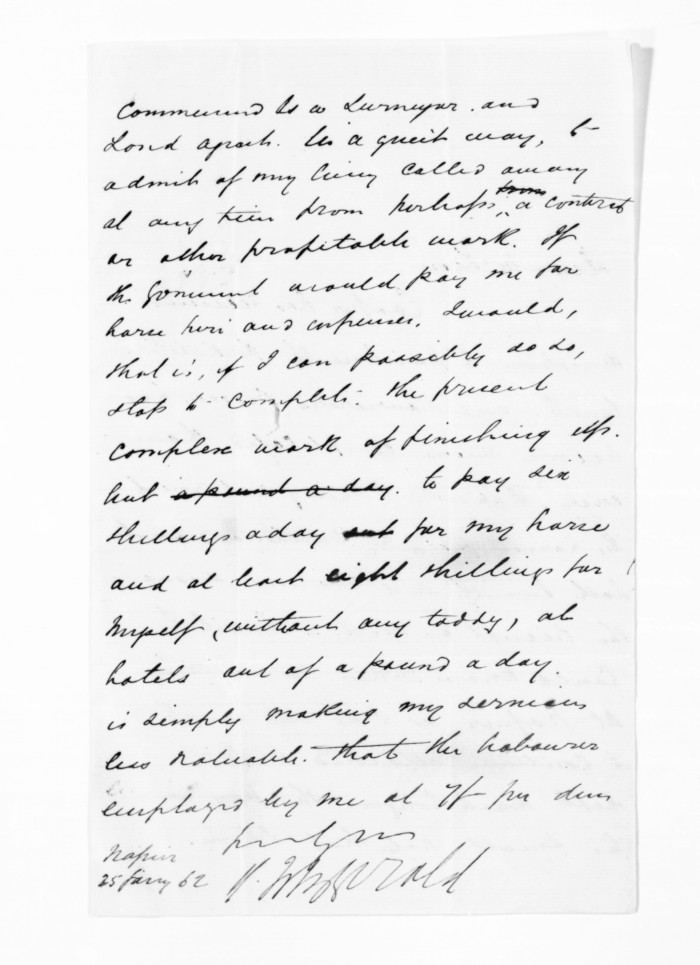 commenced as a Surveyor. and
Land agent. in a quiet way, to
admit of my being called away
at any time from perhaps a contract
or other profitable work. If
the Government would pay me for
horse hire and expenses, I would,
that is, if I can possibly do so,
stop to complete. the present
complex work of finishing up.
but a pound a day. to pay six
shillings a day out for my horse
and at least eight shillings for
myself, without any toddy, at
hotels out of a pound a day
is simply making my services
less valuable. than the labourer
employed by me at 7/ per diem
Napier
25 Jany 62 FitzGerald